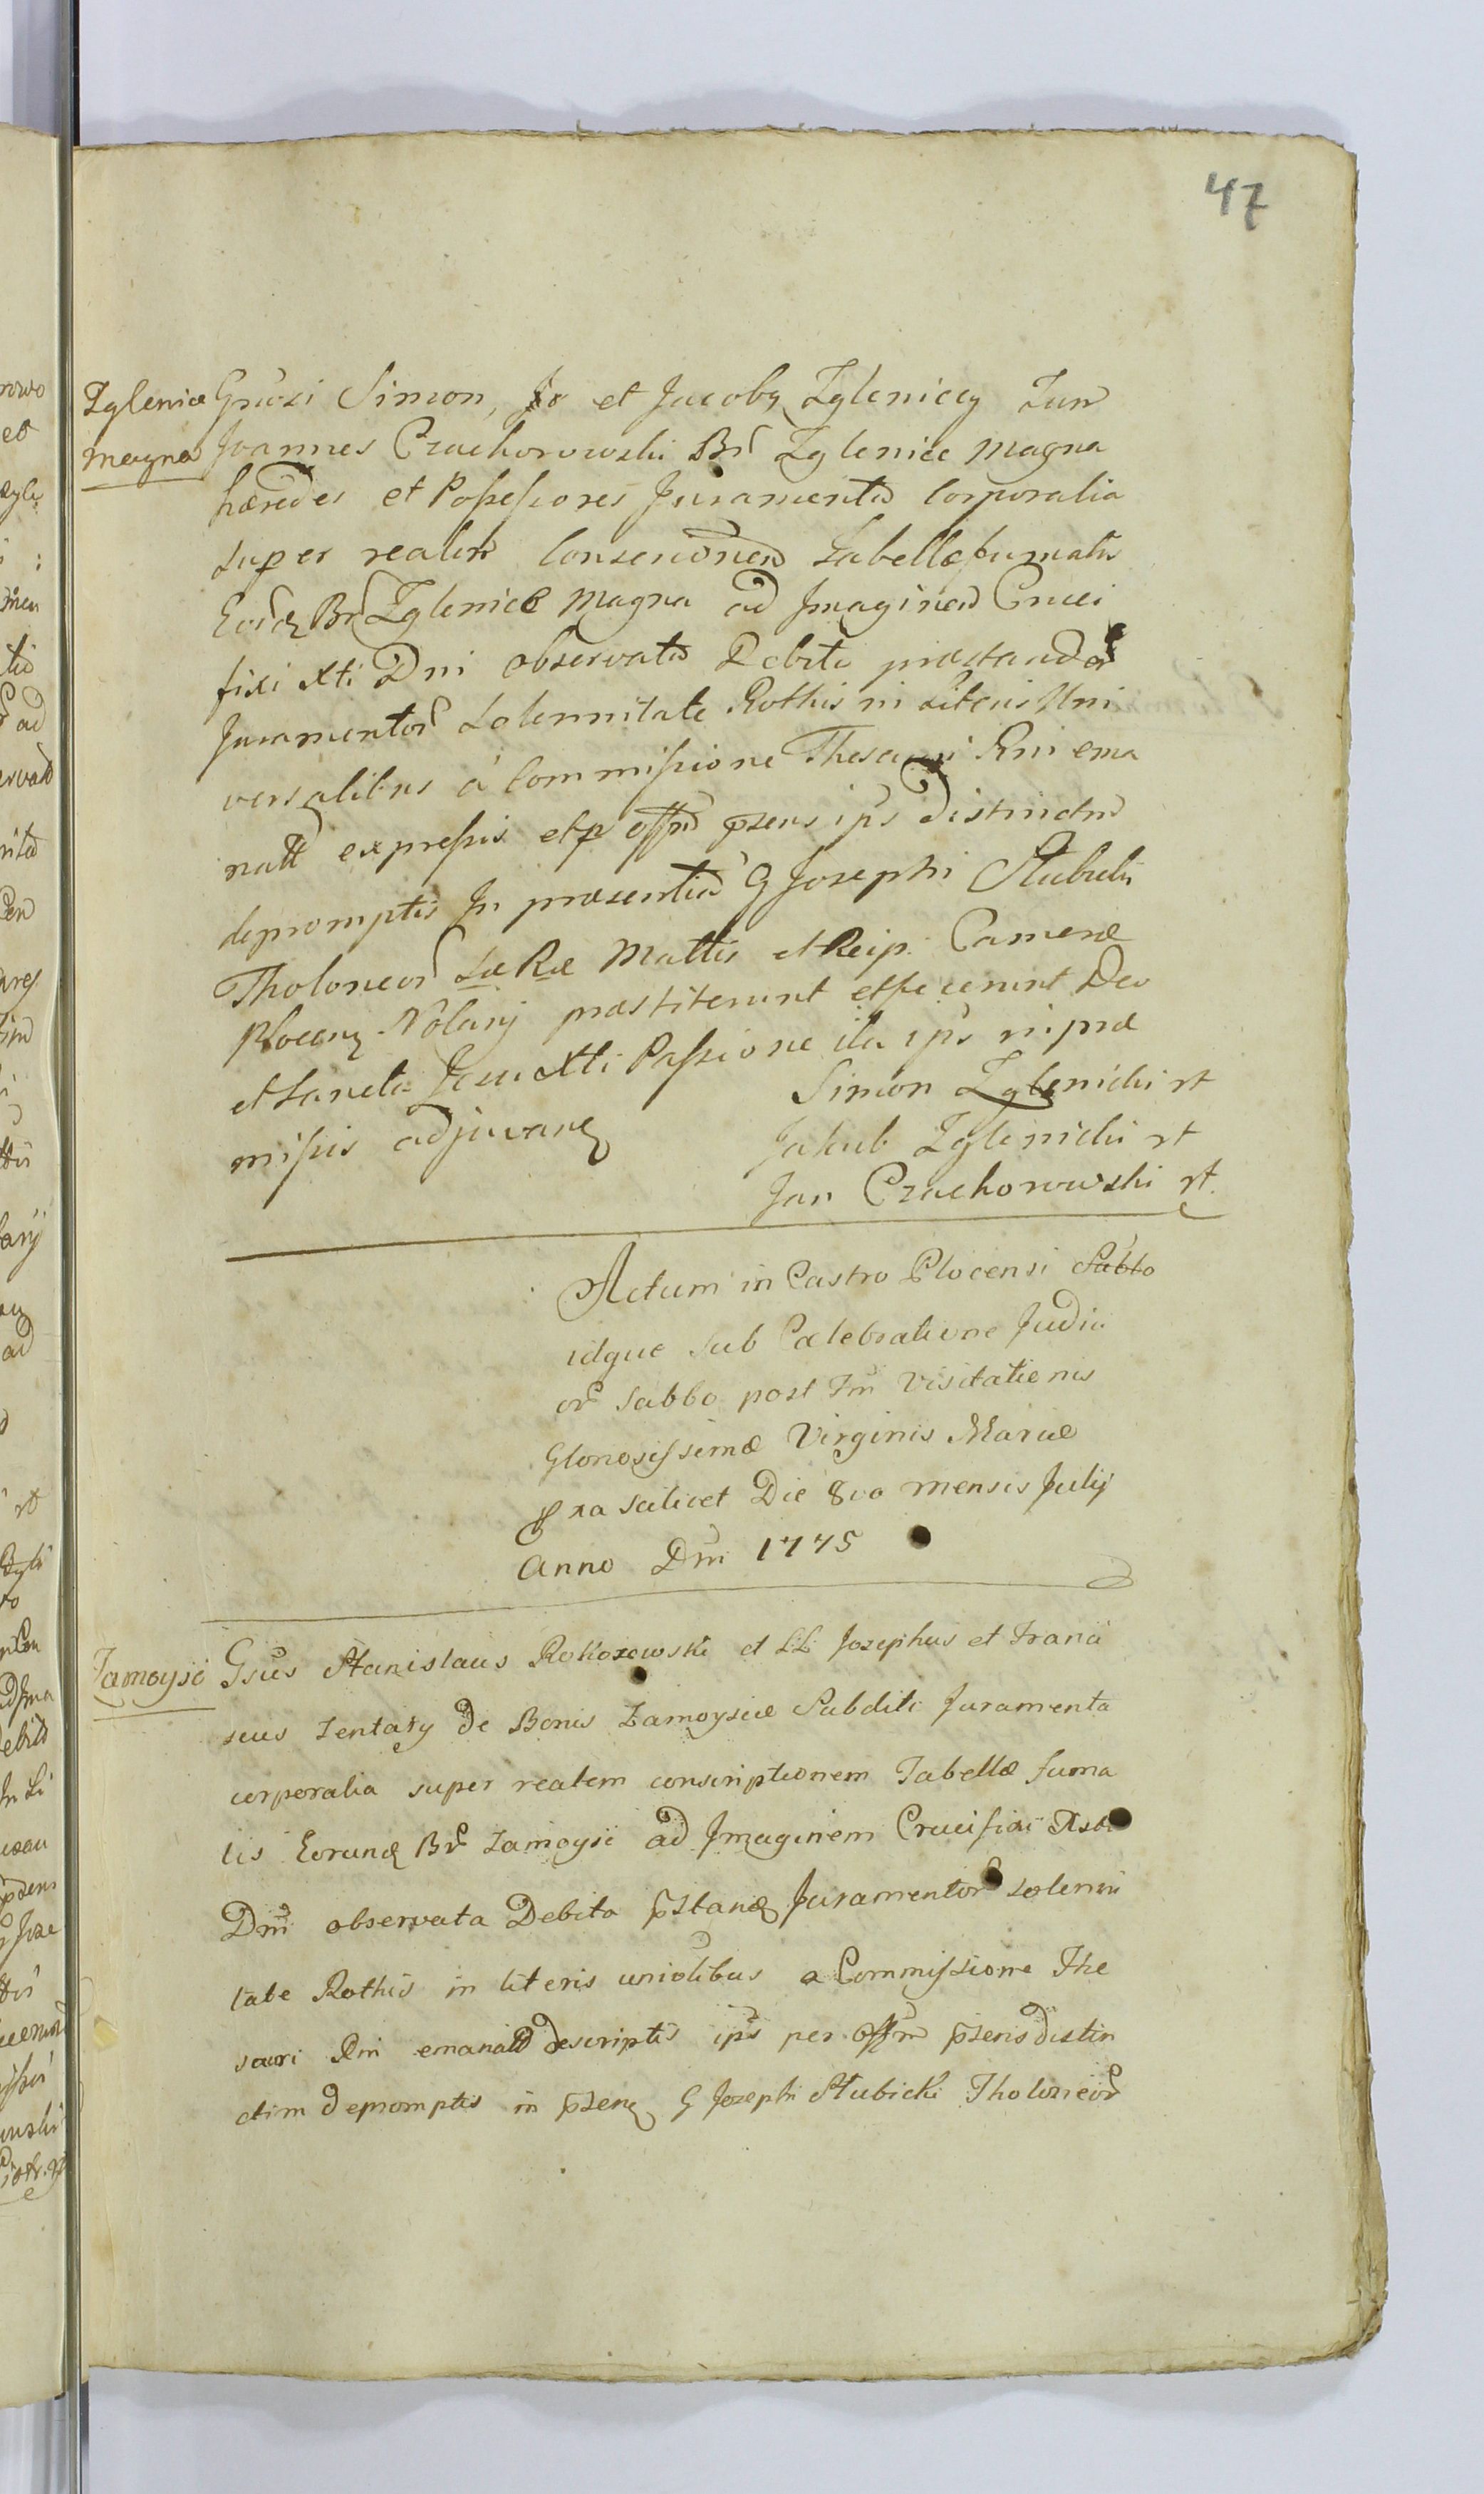 47
Zglenice
magna
Gnrosi Simon, et Jacobg Zgleniccy Tum
Joannes Czachorowski Br Zglenice Magna
hæredes et Possessores Juramenta Corporalia
super realem Conscrionem Tabellæ fumatis
Eord Br Zglenice Magna ad Imaginem Cruci
fixi Xti Dni observata Debita præstanda
Juramentor Solemnitate Rothis in Literis Uni
versalibus á Commissione Thesauri Rni ema
natt expressis et p offm pzens ips distinctim
depromptis In præsentia G Josephi Stubicki
Tholoneor Sæ Ræ Mattis et Reip. Cameræ
Plocens Notarij præstiterunt et fecerunt Deo
et Sancta Jesu Xti Passione ita ips in præ
missis adjuvan
Simon Zglenicki rt
Jakub Zglenicki rt
Jan Czachorowski rt.
Actum in Castro Plocensi Sabbo
idque sub Calebratione Judici
or Sabbo post Fm Visitationis
Gloriosissimæ Virginis Mariæ
pxa scilicet Die 8va mensis Julij
Anno Dni 1775
Zamoysce
Gsus Stanislaus Rokoszowski et LL Josephus et Franci
scus Zentary de Bonis Zamoysce Subditi Juramenta
corporalia super realem conscriptionem Tabellæ fuma
lis Eorund Br Zamoysce ad Imaginem Crucifixi Xsti
Dni observata Debita pstand Juramentor solemni
tate Rothis in literis uniolibus a Commissione The
sauri Rni emanatt descriptis ips per offm pzens distin
ctim depromptis in pzen G Josephi Stubicki Tholoneor